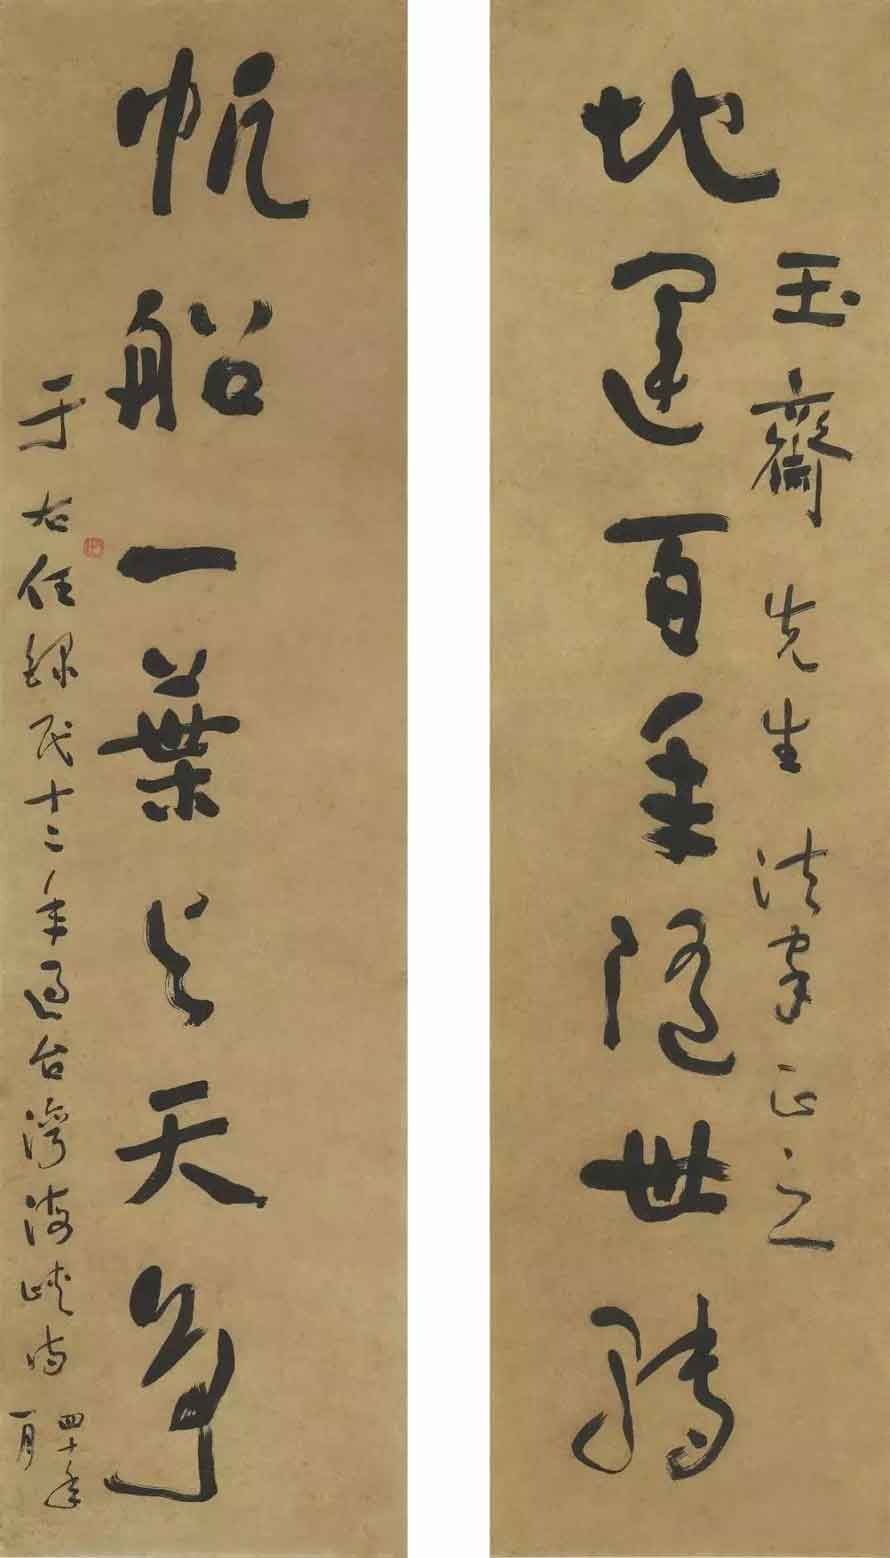 玉齋先生法家正之
地運百年隨世轉
帆船一葉与天爭
于右任錄民十二年過台灣海峽
四十年
一月